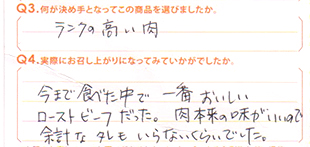 Q3.何が決め手となってこの商品を選びましたか。
ランクの高い肉
Q4.実際にお召し上がりになってみていかがでしたか。
今まで食べた中で 一番 おいしい
ローストビーフだった。肉本来の味がいいので
余計な タレも いらないくらいでした。